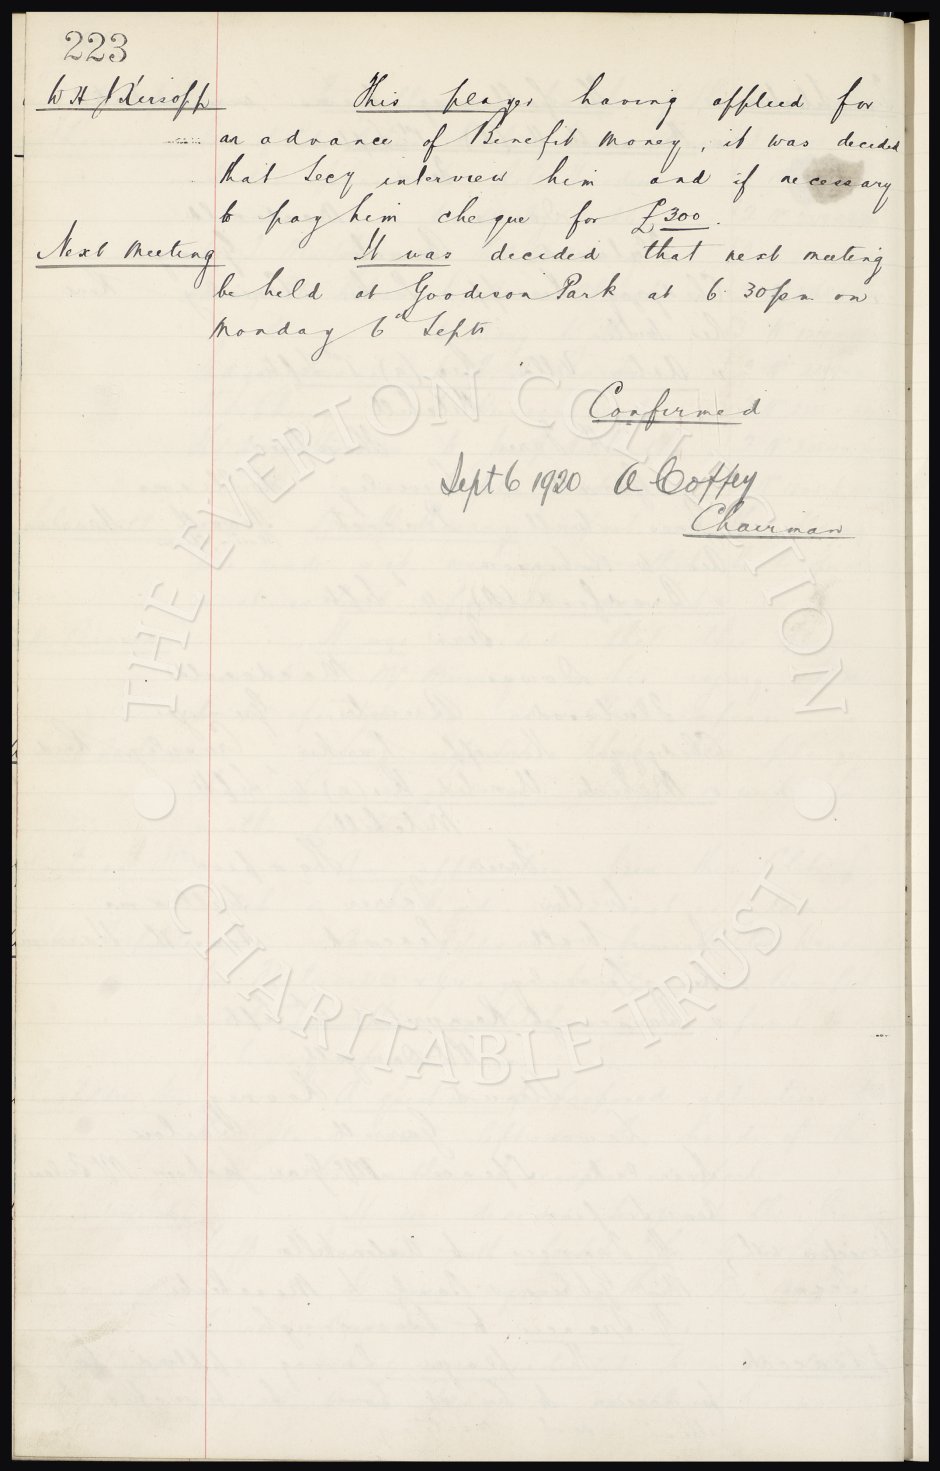 223
W H Kirsopp
This player having applied for
an advance of Benefit money, it was decided
that Secy interview him and if necessary
to pay him cheque for £300.
Next Meeting
It was decided that next meeting
be held at Goodison Park at 6.30pm on
Monday 6th Septr
Confirmed
Sept 6 1920 A Coffey
Chairman
THE EVERTON COLLECTION
CHARITABLE TRUST